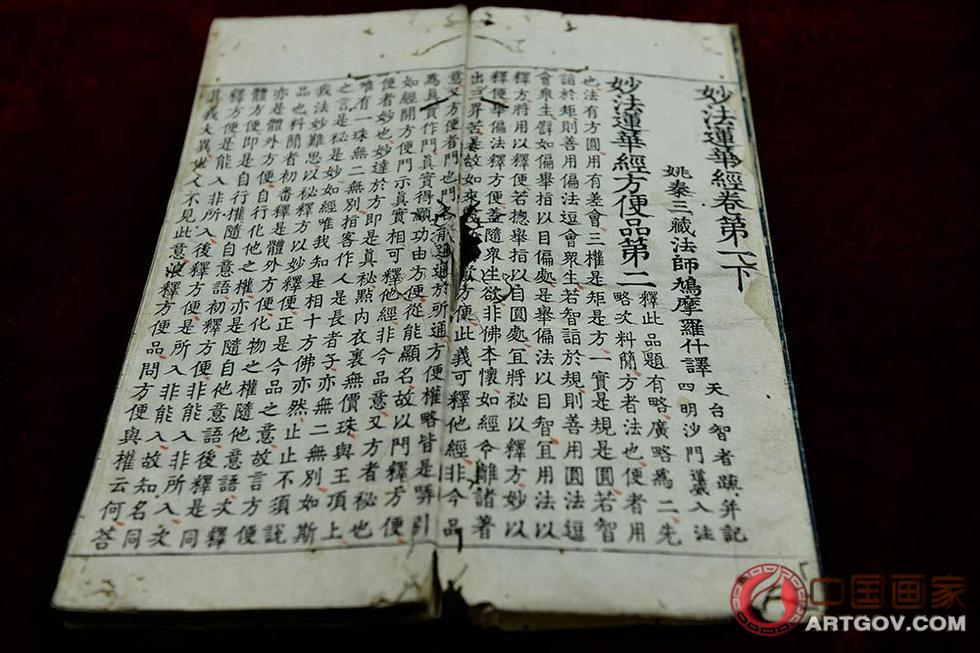 妙法蓮華經卷第一下
姚秦三藏法師鳩摩羅什譯
天台智者疏并記
四明沙門道威入法
妙法蓮華經方便品第二
釋此品題有略廣略爲二先
略次料簡方者法也便者用
也法有方圓用有差會三權是矩是方一實是規是圓若智
詣於矩則善用偏法逗會衆生若智詣於規則善用圓法逗
會衆生譬如偏舉指以目偏處是舉偏法以目智宜用法以
釋方將用以釋便若揔舉指以目圓處宜將祕以釋方妙以
釋便舉偏法釋方便蓋隨衆生欲非佛本懷如經令離諸著
出三界苦是故如來 方便此義可釋他經非今品
意又方便者門也門名能通通於所通方便權略皆是弄引
爲真實作門真實得顯功由方便從能顯名故以門釋方便
如經開方便門示真實相可釋他經非今品意又方者祕也
便者妙也妙達於方即是真祕點內衣裏無價珠與王頂上
唯有一珠無二無別指客作人是長者子亦無二無別如斯
之言是祕是妙如經唯我知是相十方佛亦然止止不須說
我法妙難思以祕釋方以妙釋便正是今品之意故言方便
品也料簡者初番釋是體外方便化物之權隨他意語次釋
亦是體外方便自行化他之權亦是隨自他意語後釋是同
體方便即是自行權隨自意語初釋方便非能入非所入次
釋方便是能入非所入後釋方便是所入非能入故知名同
其義大異世人不見此意浪釋方便品問方便與權云何答
中国画家
ARTGOV.COM